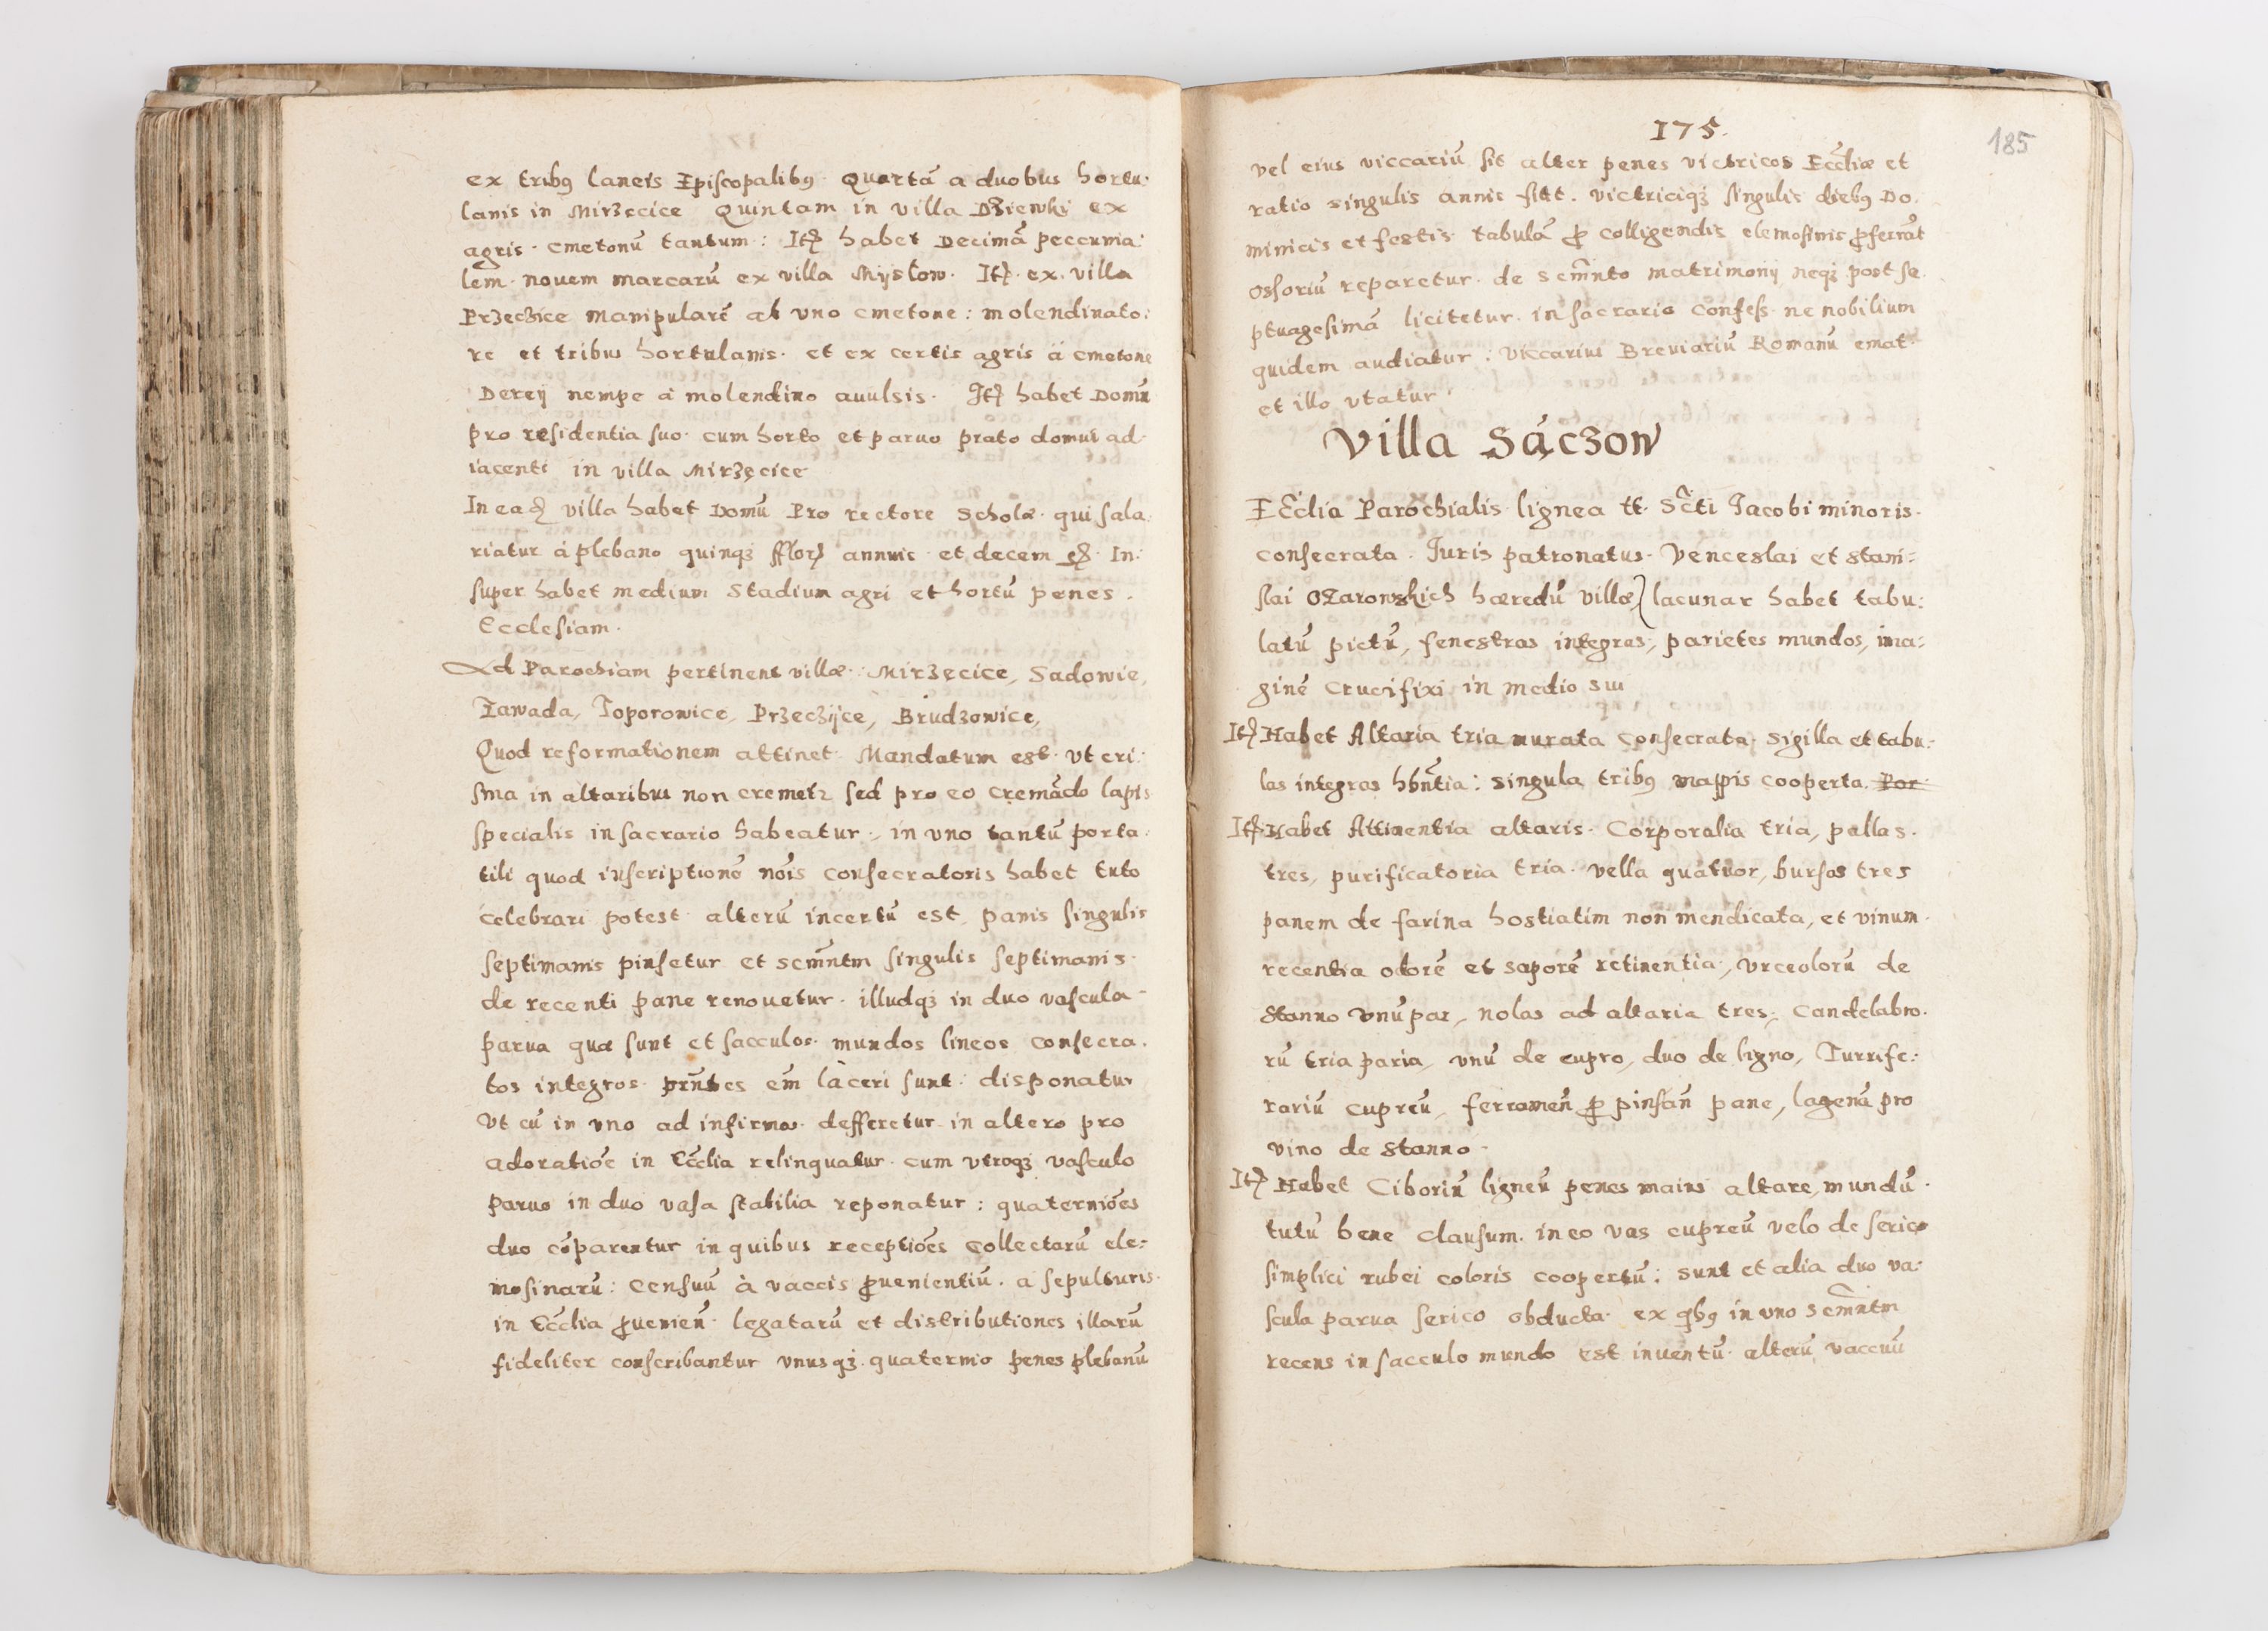 ex tribꝰ laneis Episcopalibꝰ Quartā a duobus hortu.
lanis in Mirzecice Quintam in villa Dziewki ex
agris. cmetonū tantum: Itē habet Decimā peccunia:
lem. nouem marcarū ex villa Myslow. Itē. ex. villa
Przeczice manipularē ab vno cmetone: molendinato:
re et tribus hortulanis. et ex certis agris à cmetone
Dereÿ nempe à molendino auulsis. Itē habet Domū
pro residentia suo. cum horto et paruo prato domui ad
iacenti in villa Mirzęcice
In eadē villa habet Domū Pro rectore Scholæ. qui sala
riatur à plebano quinqȝ fflorē annuis et decem In:
super habet medium Stadium agri et hortū penes.
Ecclesiam.
Ad Parochiam pertinent villæ: Mirzęcice, Sadowie,
Zawada, Toporowice, Przeczÿce, Brudzowice,
Quod reformationem attinet. Mandatum est. vt cri:
sma in altaribus non cremetr sed pro eo cremādo lapis
specialis in sacrario habeatur., in vno tantū porta.
tili quod inscriptionē nōis consecratoris habet tuto
celebrari potest. alterū incertū est, panis singulis
septimanis pinsetur et scm̄ntm singulis septimanis.
de recenti pane renouetur. illudqȝ in duo vascula
parua quæ sunt et sacculos. mundos lineos consecra.
tos integros. prn̄tes em̄ làceri sunt: disponatur
vt cū in vno ad infirmos. defferetur in altero pro
adoratiōe in Eccl̄ia relinquatur. cum vtroqȝ vasculo
paruo in duo vasa stabilia reponatur: quaterniōes
duo cōparentur in quibus receptiōes collectarū ele:
mosinarū: censuū à vaccis ꝓuenientiū. a sepulturis.
in Eccl̄ia ꝓuenien̄. legatarū et distributiones illarū
fideliter conscribantur vnusqȝ. quaternio penes plebanū
175.
185
vel eius viccariū sit alter penes victricos Eccl̄iæ et
ratio singulis annis fiat. victriciqȝ singulis diebꝰ Do.
minicis et festis. tabulā ꝓ colligendis elemosinis ꝓferrāt
ossoriū reparetur. de scm̄nto matrimonÿ neqȝ post se.
ptuagesimā licitetur. in sacrario confess. ne nobilium
quidem audiatur: viccarius Breuiariū Romanū emat.
et illo vtatur
Villa Sączow
Eccl̄ia Parochialis lignea tt. Sc̄ti Jacobi minoris.
consecrata. Juris patronatus. Venceslai et stani:
slai Ozarowskich hæredū villæ lacunar habet tabu:
latū pictū, fenestras integras, parietes mundos, ima:
ginē crucifixi in medio sui
Itē Habet Altaria tria murata consecrata, sigilla et tabu:
las integras hbn̄tia: singula tribꝰ mappis cooperta. Por
Itē Habet Attinentia altaris. Corporalia tria, pallas.
tres, purificatoria tria. vella quatuor, bursas tres
panem de farina hostiatim non mendicata, et vinum.
recentia odorē et saporē retinentia, vrceolorū de
stanno vnū par, nolas ad altaria tres, Candelabro.
rū tria paria, vnū de cupro, duo de ligno, Turrife.:
rariū cupreū, ferramen̄ ꝓ pinsan̄ pane, lagenā pro
vino de stanno.
Itē Habet Ciboriū ligneū penes maius altare, mundū.
tutū bene clausum. in eo vas cupreū velo de serico
simplici rubei coloris coopertū: sunt et alia duo va:
scula parua serico obducta. ex qbꝰ in vno scm̄ntm
recens in sacculo mundo est inuentū. alterū vaccuū